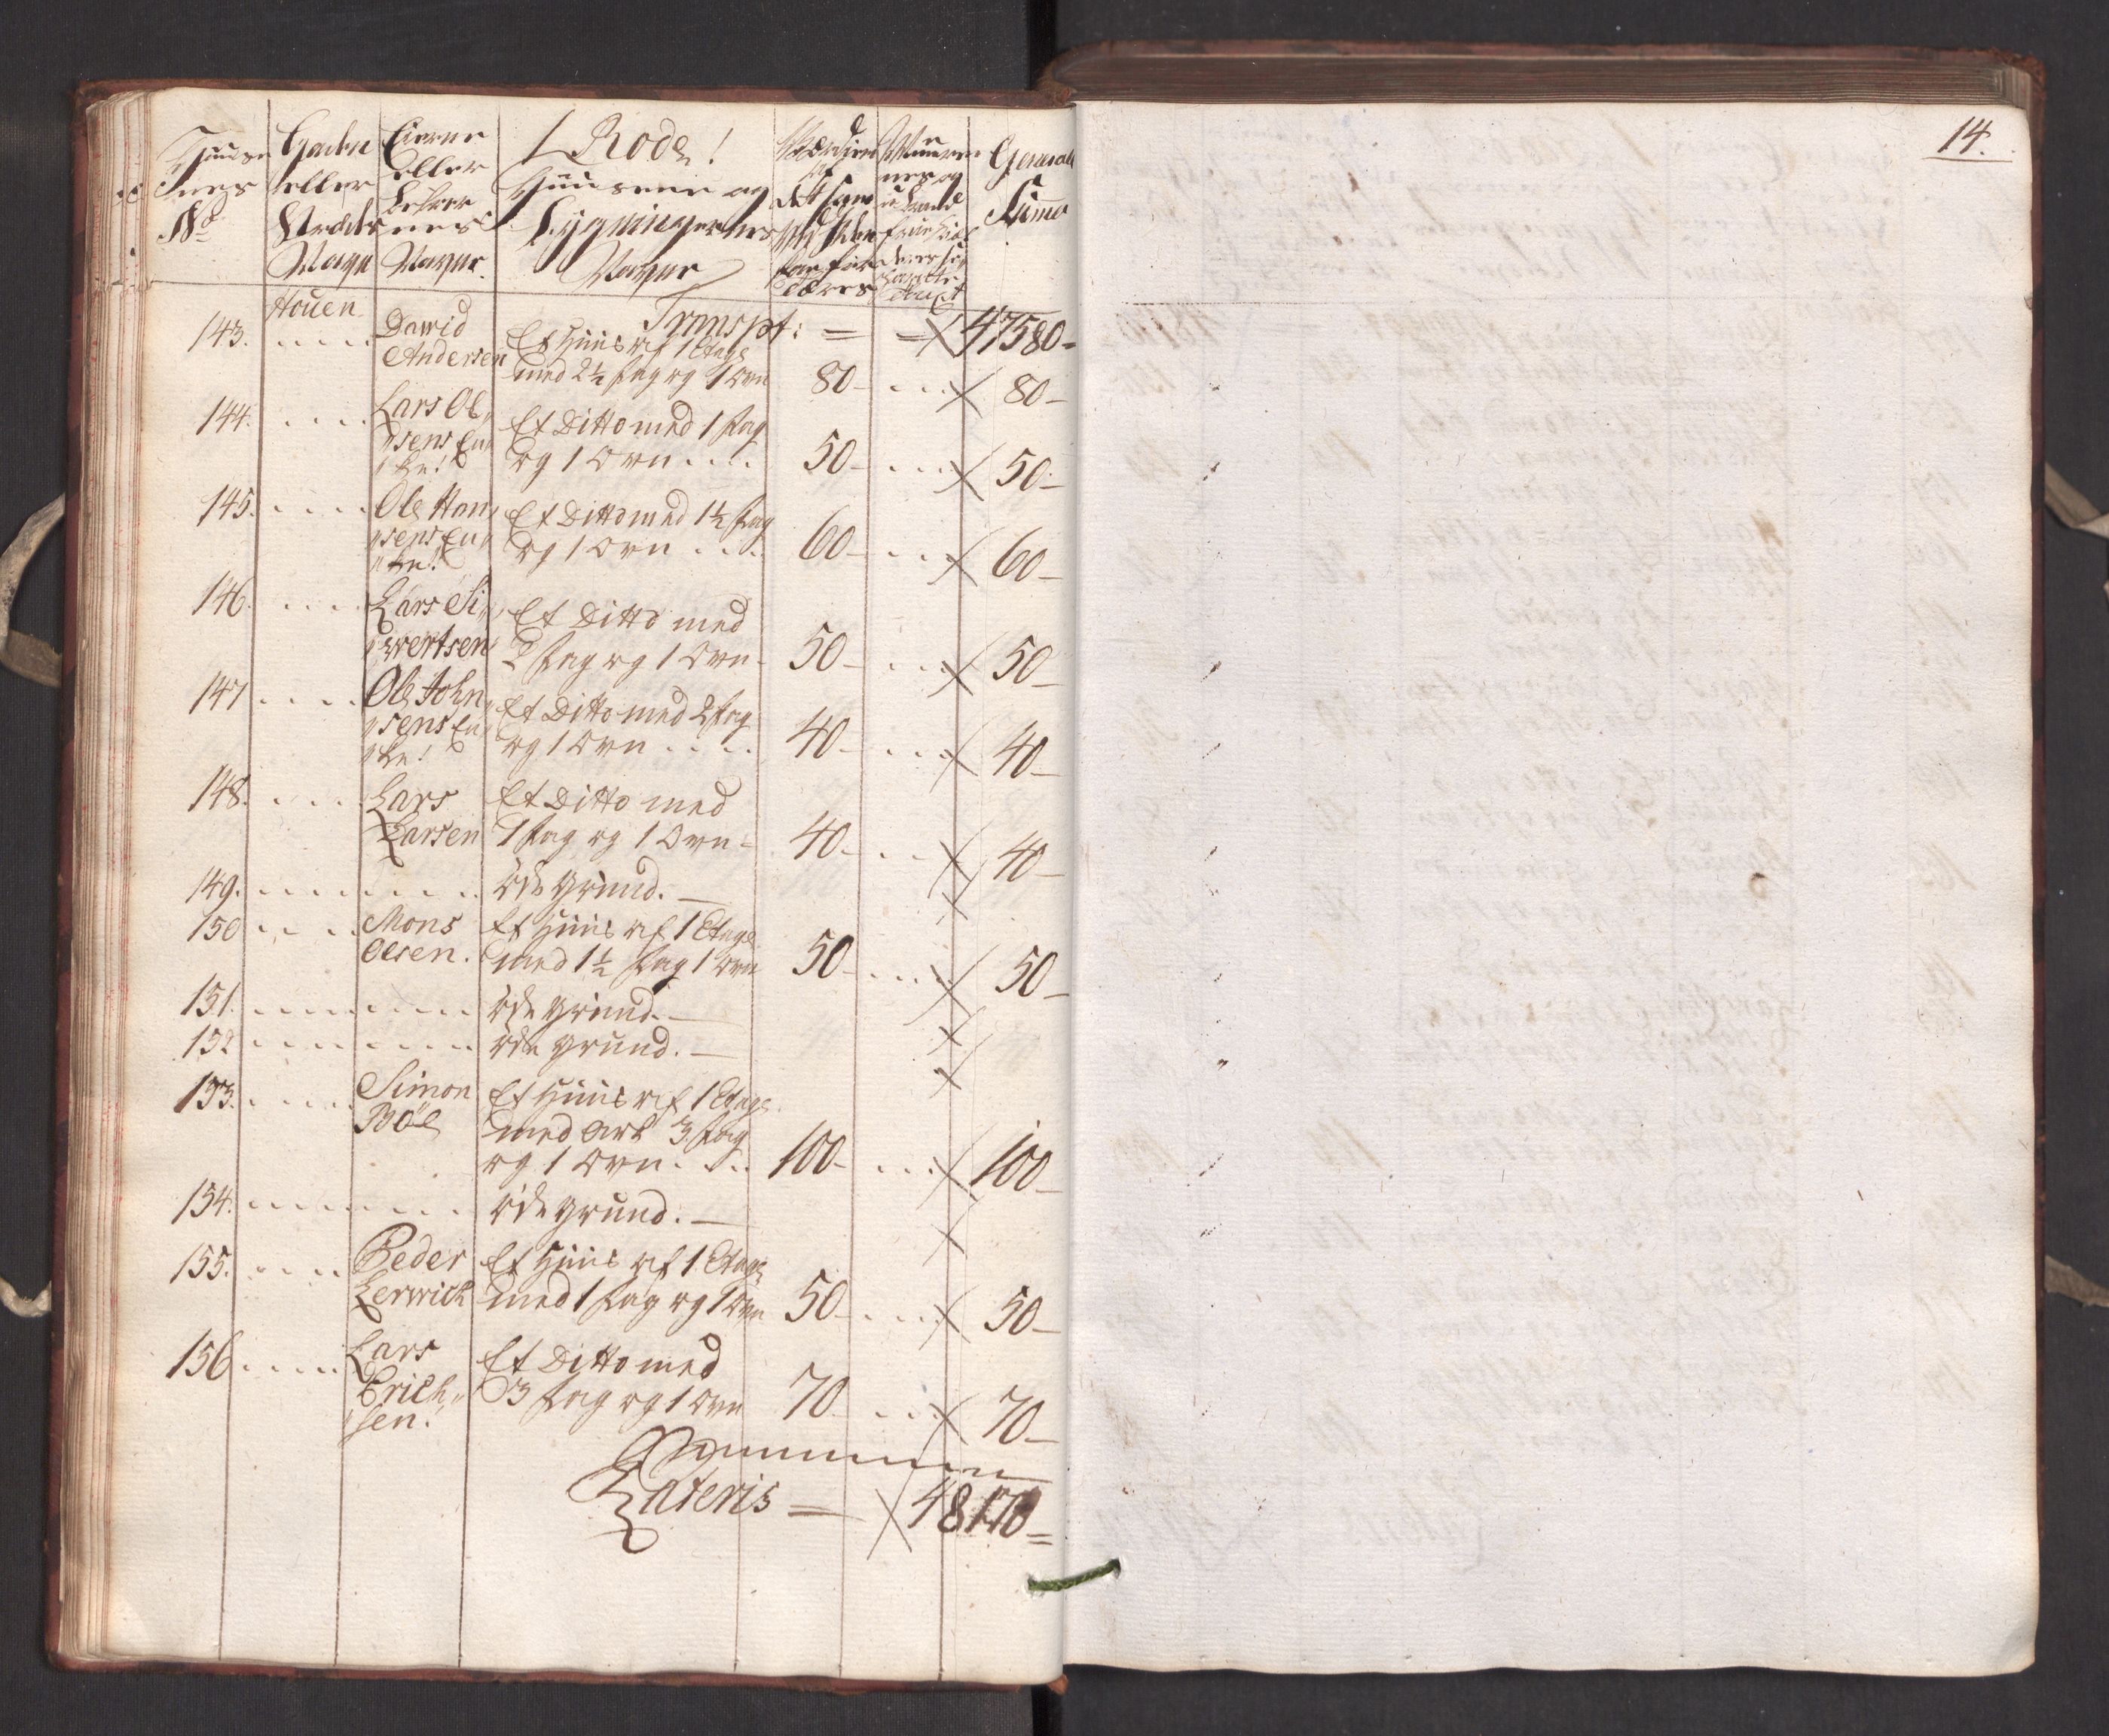 14.
Huuse
nes
No
Gaden
eller
Stræds
Navn
Eierne
eller
nes
Navne.
1 Rode!
Huusene og
Bygningernes
Navne
Værdien
af
General
Summa
Houen
Transpt: = = 47580=
143. .... Dawid
Andersen
Et Huus af 1 Etage
med 2½ fag og 1 Ovn 80- ... 80-
144. .... Lars Ol„
„sens En„
„ke!
Et Ditto med 1 fag
og 1 Ovn .... 50- ... 50-
145. .... Ole Han„
„sens En„
„ke!
Et Ditto med 1½ fag
og 1 Ovn .... 60- ... 60-
146. .... Lars Si„
„wertsen
Et Ditto med
2 fag og 1 Ovn- 50- ... 50-
147 .... Ole John„
„sens En„
„ke!
Et Ditto med 2 fag
og 1 Ovn .... 40- ... 40-
148. .... Lars
Larsen
Et Ditto med
1 fag og 1 Ovn- 40- ... 40-
149. ........ öde grund.-
150 .... Mons
Olsen.
Et Huus af 1 Etage
med 1½ fag 1 Ovn 50- .... 50-
151. ........ öde grund.-
152 ........ öde grund.-
153. .... Simon
Böe
Et Huus af 1 Etage
med Ark 3 fag
og 1 Ovn.... 100- ... 100-
154. ........ öde grund.-
155. .... Peder
Lerwick
Et Huus af 1 Etage
med 1 fag og 1 Ovn 50- ... 50-
156 .... Lars
Erich„
„sen.
Et Ditto med
3 fag og 1 Ovn 70- ... 70-
Lateris - 48170=